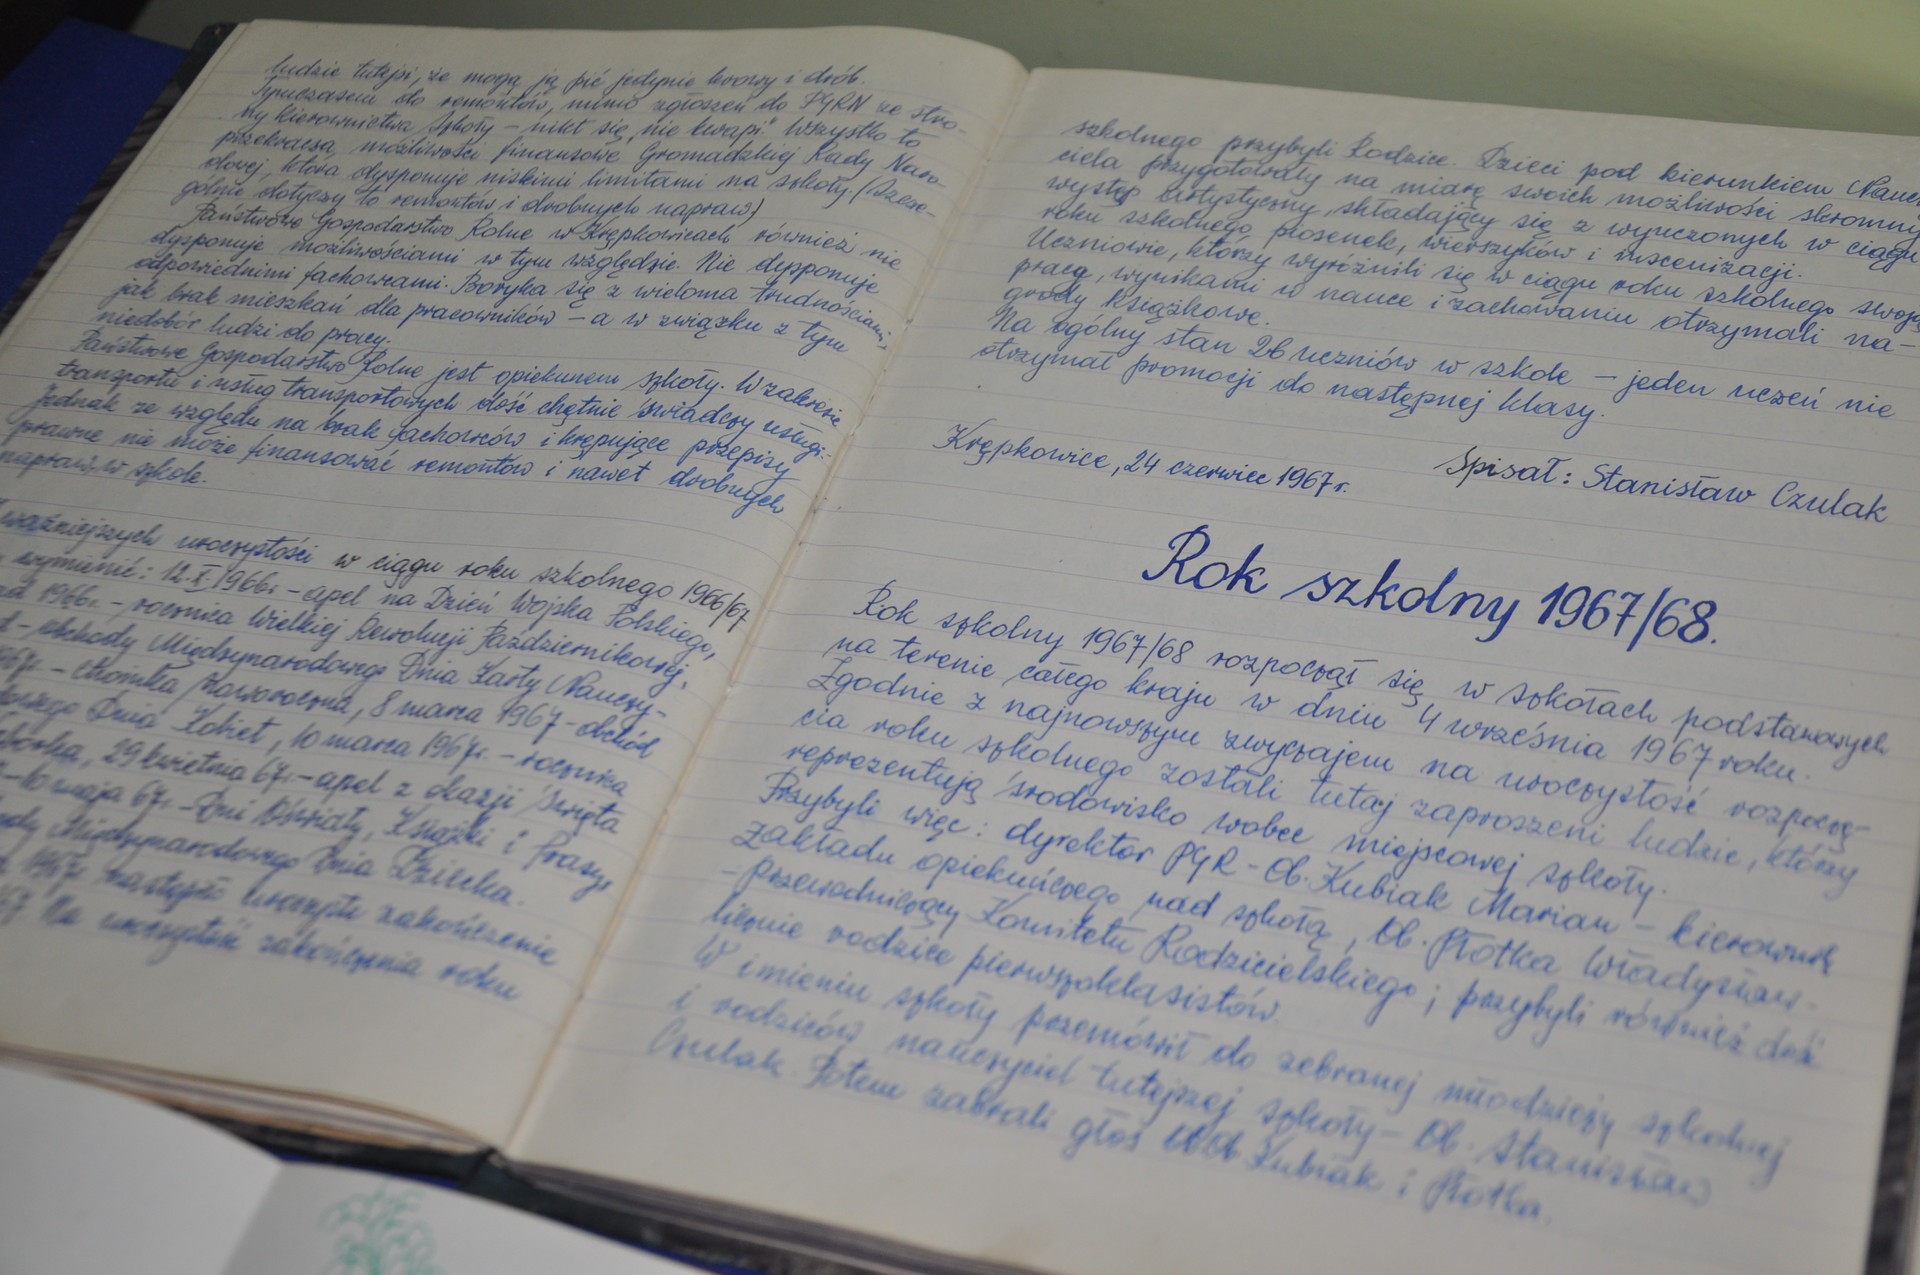 ludzie tutejsi, że mogą ją pić jedynie krowy i drób.
Tymczasem do remontów, mimo zgłoszeń do PGRN ze stro-
ny kierownictwa szkoły – nikt się „nie kwapi." Wszystko to
przekracza możliwości finansowe Gromadzkiej Rady Naro-
dowej, która dysponuje niskimi limitami na szkoły. (Szcze-
gólnie dotyczy to remontów i drobnych napraw)
Państwowe Gospodarstwo Rolne w Krępkowicach również nie
dysponuje możliwościami w tym względzie. Nie dysponuje
odpowiednimi fachowcami. Boryka się z wieloma trudnościami,
jak brak mieszkań dla pracowników – a w związku z tym
niedobór ludzi do pracy.
Państwowe Gospodarstwo Rolne jest opiekunem szkoły. W zakresie
transportu i usług transportowych dość chętnie świadczy usługi.
Jednak ze względu na brak fachowców i krępujące przepisy
prawne nie może finansować remontów i nawet drobnych
napraw w szkole.
ważniejszych uroczystości w ciągu roku szkolnego 1966/67
wymienić: 12.X.1966r. – apel na Dzień Wojska Polskiego,
1966r. – rocznica Wielkiej Rewolucji Październikowej,
– obchody Międzynarodowego Dnia Karty Nauczy-
1967r. – choinka noworoczna, 8 marca 1967 – obchód
Dnia Kobiet, 10 marca 1967r. – rocznica
29 kwietnia 67r. – apel z okazji Święta
– 10 maja 67r. – Dni Oświaty, Książki i Prasy
Międzynarodowego Dnia Dziecka.
1967r. nastąpiło uroczyste zakończenie
67. Na uroczystość zakończenia roku
szkolnego przybyli Rodzice. Dzieci pod kierunkiem Nauczy-
ciela przygotowały na miarę swoich możliwości skromny
występ artystyczny, składający się z wyuczonych w ciągu
roku szkolnego piosenek, wierszyków i inscenizacji.
Uczniowie, którzy wyróżnili się w ciągu roku szkolnego swoją
pracą, wynikami w nauce i zachowaniu otrzymali na-
grody książkowe.
Na ogólny stan 26 uczniów w szkole – jeden uczeń nie
otrzymał promocji do następnej klasy.
Krępkowice, 24 czerwiec 1967r.
Spisał: Stanisław Czulak
Rok szkolny 1967/68.
Rok szkolny 1967/68 rozpoczął się w szkołach podstawowych
na terenie całego kraju w dniu 4 września 1967 roku.
Zgodnie z najnowszym zwyczajem na uroczystość rozpoczę-
cia roku szkolnego zostali tutaj zaproszeni ludzie, którzy
reprezentują środowisko wobec miejscowej szkoły.
Przybyli więc: dyrektor PGR – Ob. Kubiak Marian – kierownik
zakładu opiekuńczego nad szkołą, Ob. Płotka Władysław
– przewodniczący Komitetu Rodzicielskiego; przybyli również dość
licznie rodzice pierwszoklasistów.
W imieniu szkoły przemówił do zebranej młodzieży szkolnej
i rodziców nauczyciel tutejszej szkoły – Ob. Stanisław
Czulak. Potem zabrali głos Ob.Ob. Kubiak i Płotka.